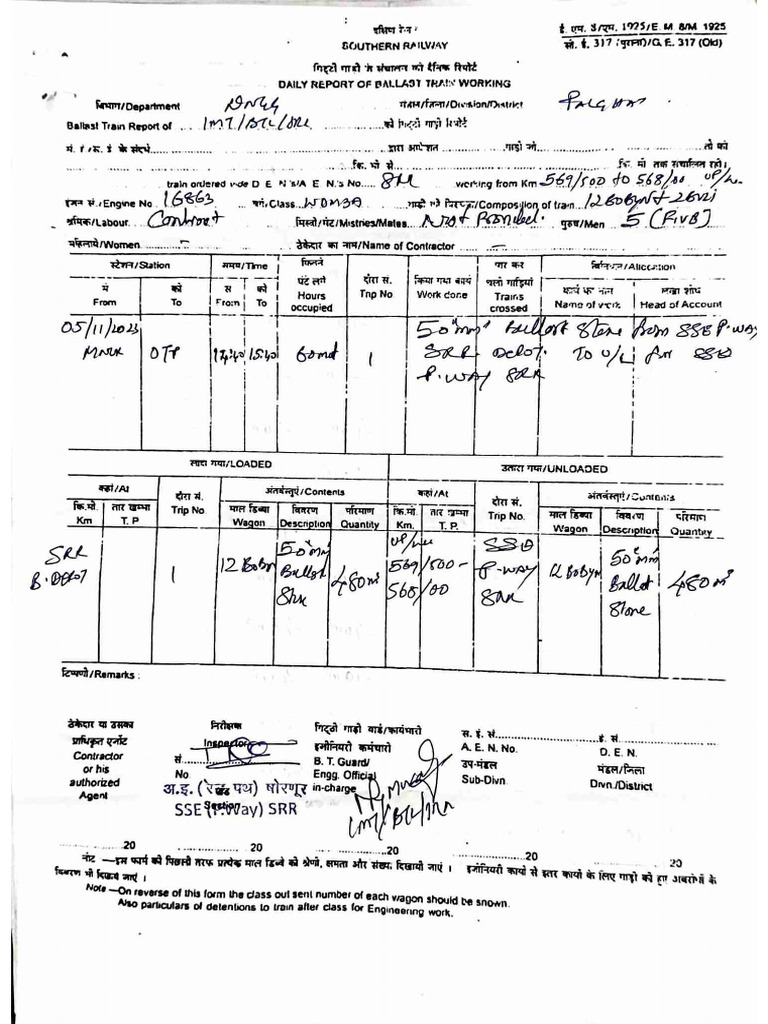 दक्षिण रेलवे
SOUTHERN RAILWAY
ई. एम. 8/एम. 1925/E. M 8/M 1925
सी. ई. 317 (पुराना)/G. E. 317 (Old)
गिट्टी गाड़ी के संचालन की दैनिक रिपोर्ट
DAILY REPORT OF BALLAST TRAIN WORKING
विभाग/Department
मंडल/जिला/Division/District
Ballast Train Report of IMT/BTC/SRR की गिट्टी गाड़ी रिपोर्ट
द्वारा आदेशित गाड़ी नं. को
कि. मी से कि. मी तक संचालित रही।
train ordered vide D. E. N's/A. E. N.'s No. SRR working from Km 569/500 to 568/00 UP/L.
इंजन सं./Engine No 16863 वर्ग/Class WDM3A गाड़ी की /Composition of train 12 BOBYN+2BVZI
श्रमिक/Labour Contract मिस्त्री/मेट/Mistries/Mates Not Provided. पुरुष/Men 5 (RVB)
महिलायें/Women – ठेकेदार का नाम/Name of Contractor –
स्टेशन/Station समय/Time कितने घंटे लगे Hours occupied दौरा सं. Trip No किया गया कार्य Work done पार कर चली गाड़ियाँ Trains crossed विनिधान/Allocation
From को To From को To कार्य का नाम Name of work लेखा शीर्ष Head of Account
05/11/2023 50mm Ballast Stone from SSE P.WAY
OTP 14.40 15.40 60mt 1 SRR Depot. To U/L for SSE
P.WAY SRR
लादा गया/LOADED उतारा गया/UNLOADED
कहां/At दौरा सं. Trip No. अंतर्वस्तुएं/Contents कहां/At दौरा सं. Trip No. अंतर्वस्तुएं/Contents
कि.मी. Km तार खम्भा T. P. माल डिब्बा Wagon विवरण Description परिमाण Quantity कि.मी. Km. तार खम्भा T. P. माल डिब्बा Wagon विवरण Description परिमाण Quantity
SRR B.DEPOT 1 12 BOBYN 50mm Ballast Stone 480m³ 569/500- 568/00 SSE P.WAY SRR 12 BOBYN 50mm Ballast Stone 480m³
टिप्पणी/Remarks :
ठेकेदार या उसका निरीक्षक गिट्टी गाड़ी गार्ड/कार्यभारी स. इं. सं. इं. सं.
प्राधिकृत एजेंट Inspector इंजीनियरी कर्मचारी A. E. N. No. D. E. N.
Contractor सं. B. T. Guard/ उप-मंडल मंडल/जिला
or his No Engg. Official Sub-Divn. Divn./District
authorized अ.इ. (रेल पथ) षोरणूर in-charge
Agent SSE (P.Way) SRR
IMT/BTC/SRR
20 20 20 20 20
नोट —इस फार्म की पिछली तरफ प्रत्येक माल डिब्बे की श्रेणी, क्षमता और संख्य दिखायी जाएं। इंजीनियरी कार्यों से इतर कार्यों के लिए गाड़ी को हुए अवरोधों के
विवरण भी दिखाये जाएं।
Note —On reverse of this form the class out sent number of each wagon should be snown.
Also particulars of detentions to train after class for Engineering work.